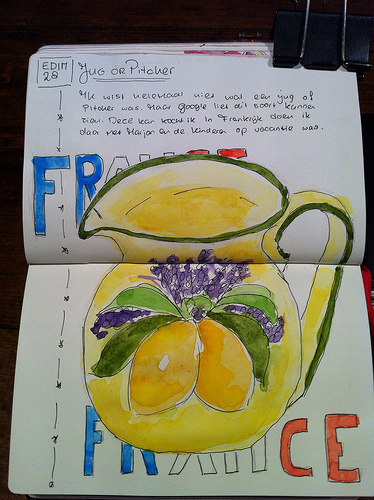 EDIM
28
Jug or Pitcher
Ik wist helemaal niet wat een jug of
Pitcher was. Maar Google liet dit soort kannen
zien. Deze kan kocht ik in Frankrijk toen ik
daar met Marjon en de kinderen op vacantie was.
FRANCE
FRANCE